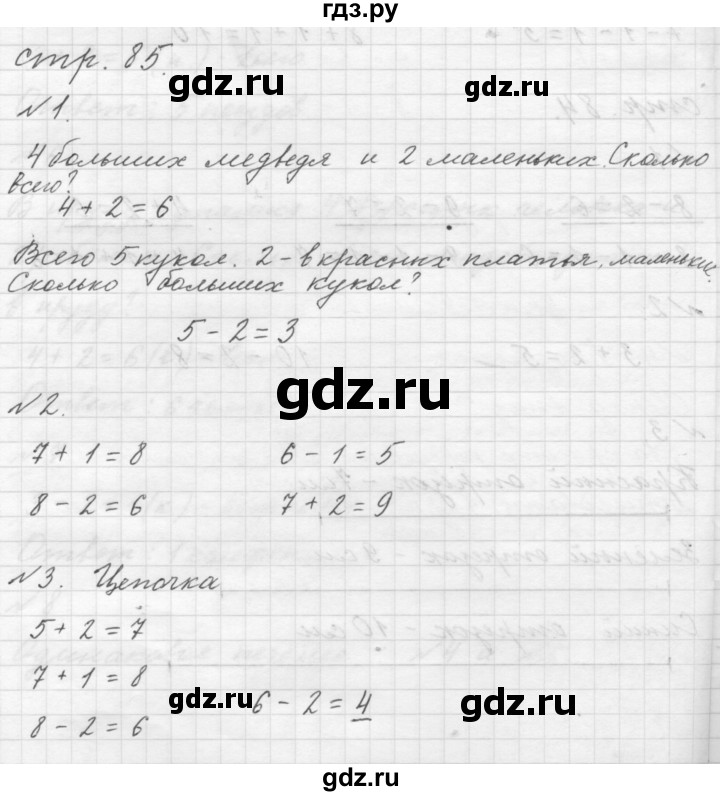 гдз.ру
стр. 85.
gdz.ru gdz.ru
№1.
4 больших медведя и 2 маленьких. Сколько
всего?
4 + 2 = 6
Всего 5 кукол. 2 - в красных платья, маленькие.
Сколько больших кукол?
5 - 2 = 3
gdz.ru
№2.
7 + 1 = 8 6 - 1 = 5
8 - 2 = 6 7 + 2 = 9
№3. Цепочка
5 + 2 = 7
7 + 1 = 8
gdz.ru 6 - 2 = 4 gdz.ru
8 - 2 = 6
gdz.ru